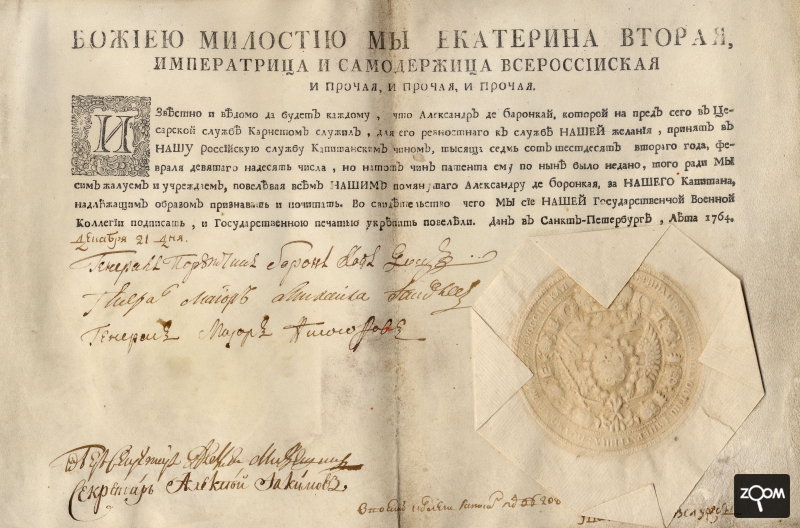 БОЖІЕЮ МИЛОСТІЮ МЫ ЕКАТЕРИНА ВТОРАЯ,
ИМПЕРАТРИЦА И САМОДЕРЖИЦА ВСЕРОССІИСКАЯ
И ПРОЧАЯ, И ПРОЧАЯ, И ПРОЧАЯ.
ИЗвѣстно и вѣдомо да будетъ каждому, что Александръ де баронкай, которой на предъ сего въ Це-
сарской службѣ Карнетомъ служилъ, для его ревностнаго къ службѣ НАШЕЙ желанія, принятъ въ
НАШУ россійскую службу Капитанскимъ чиномъ, тысяща седмь сотъ шестдесятъ втораго года, фе-
враля девятаго надесять числа, но натотъ чинъ патента ему по нынѣ было недано, того ради МЫ
симъ жалуемъ и учреждаемъ, повелѣвая всѣмъ НАШИМЪ помянутаго Александру де боронкая, за НАШЕГО Капитана,
надлѣжащимъ образомъ признавать и почитать. Во свидѣтельство чего МЫ сіе НАШЕЙ Государственной Военной
Коллегіи подписать, и Государственною печатью укрѣпить повелѣли. Данъ въ Санктъ-Петербургѣ, Лѣта 1764.
Декабря 21 дня.
Генералъ Порутчикъ баронъ
Генералъ Маіоръ Михайла
Генералъ Маіоръ
Секретарь Алексѣй Якимовъ
ZOOM